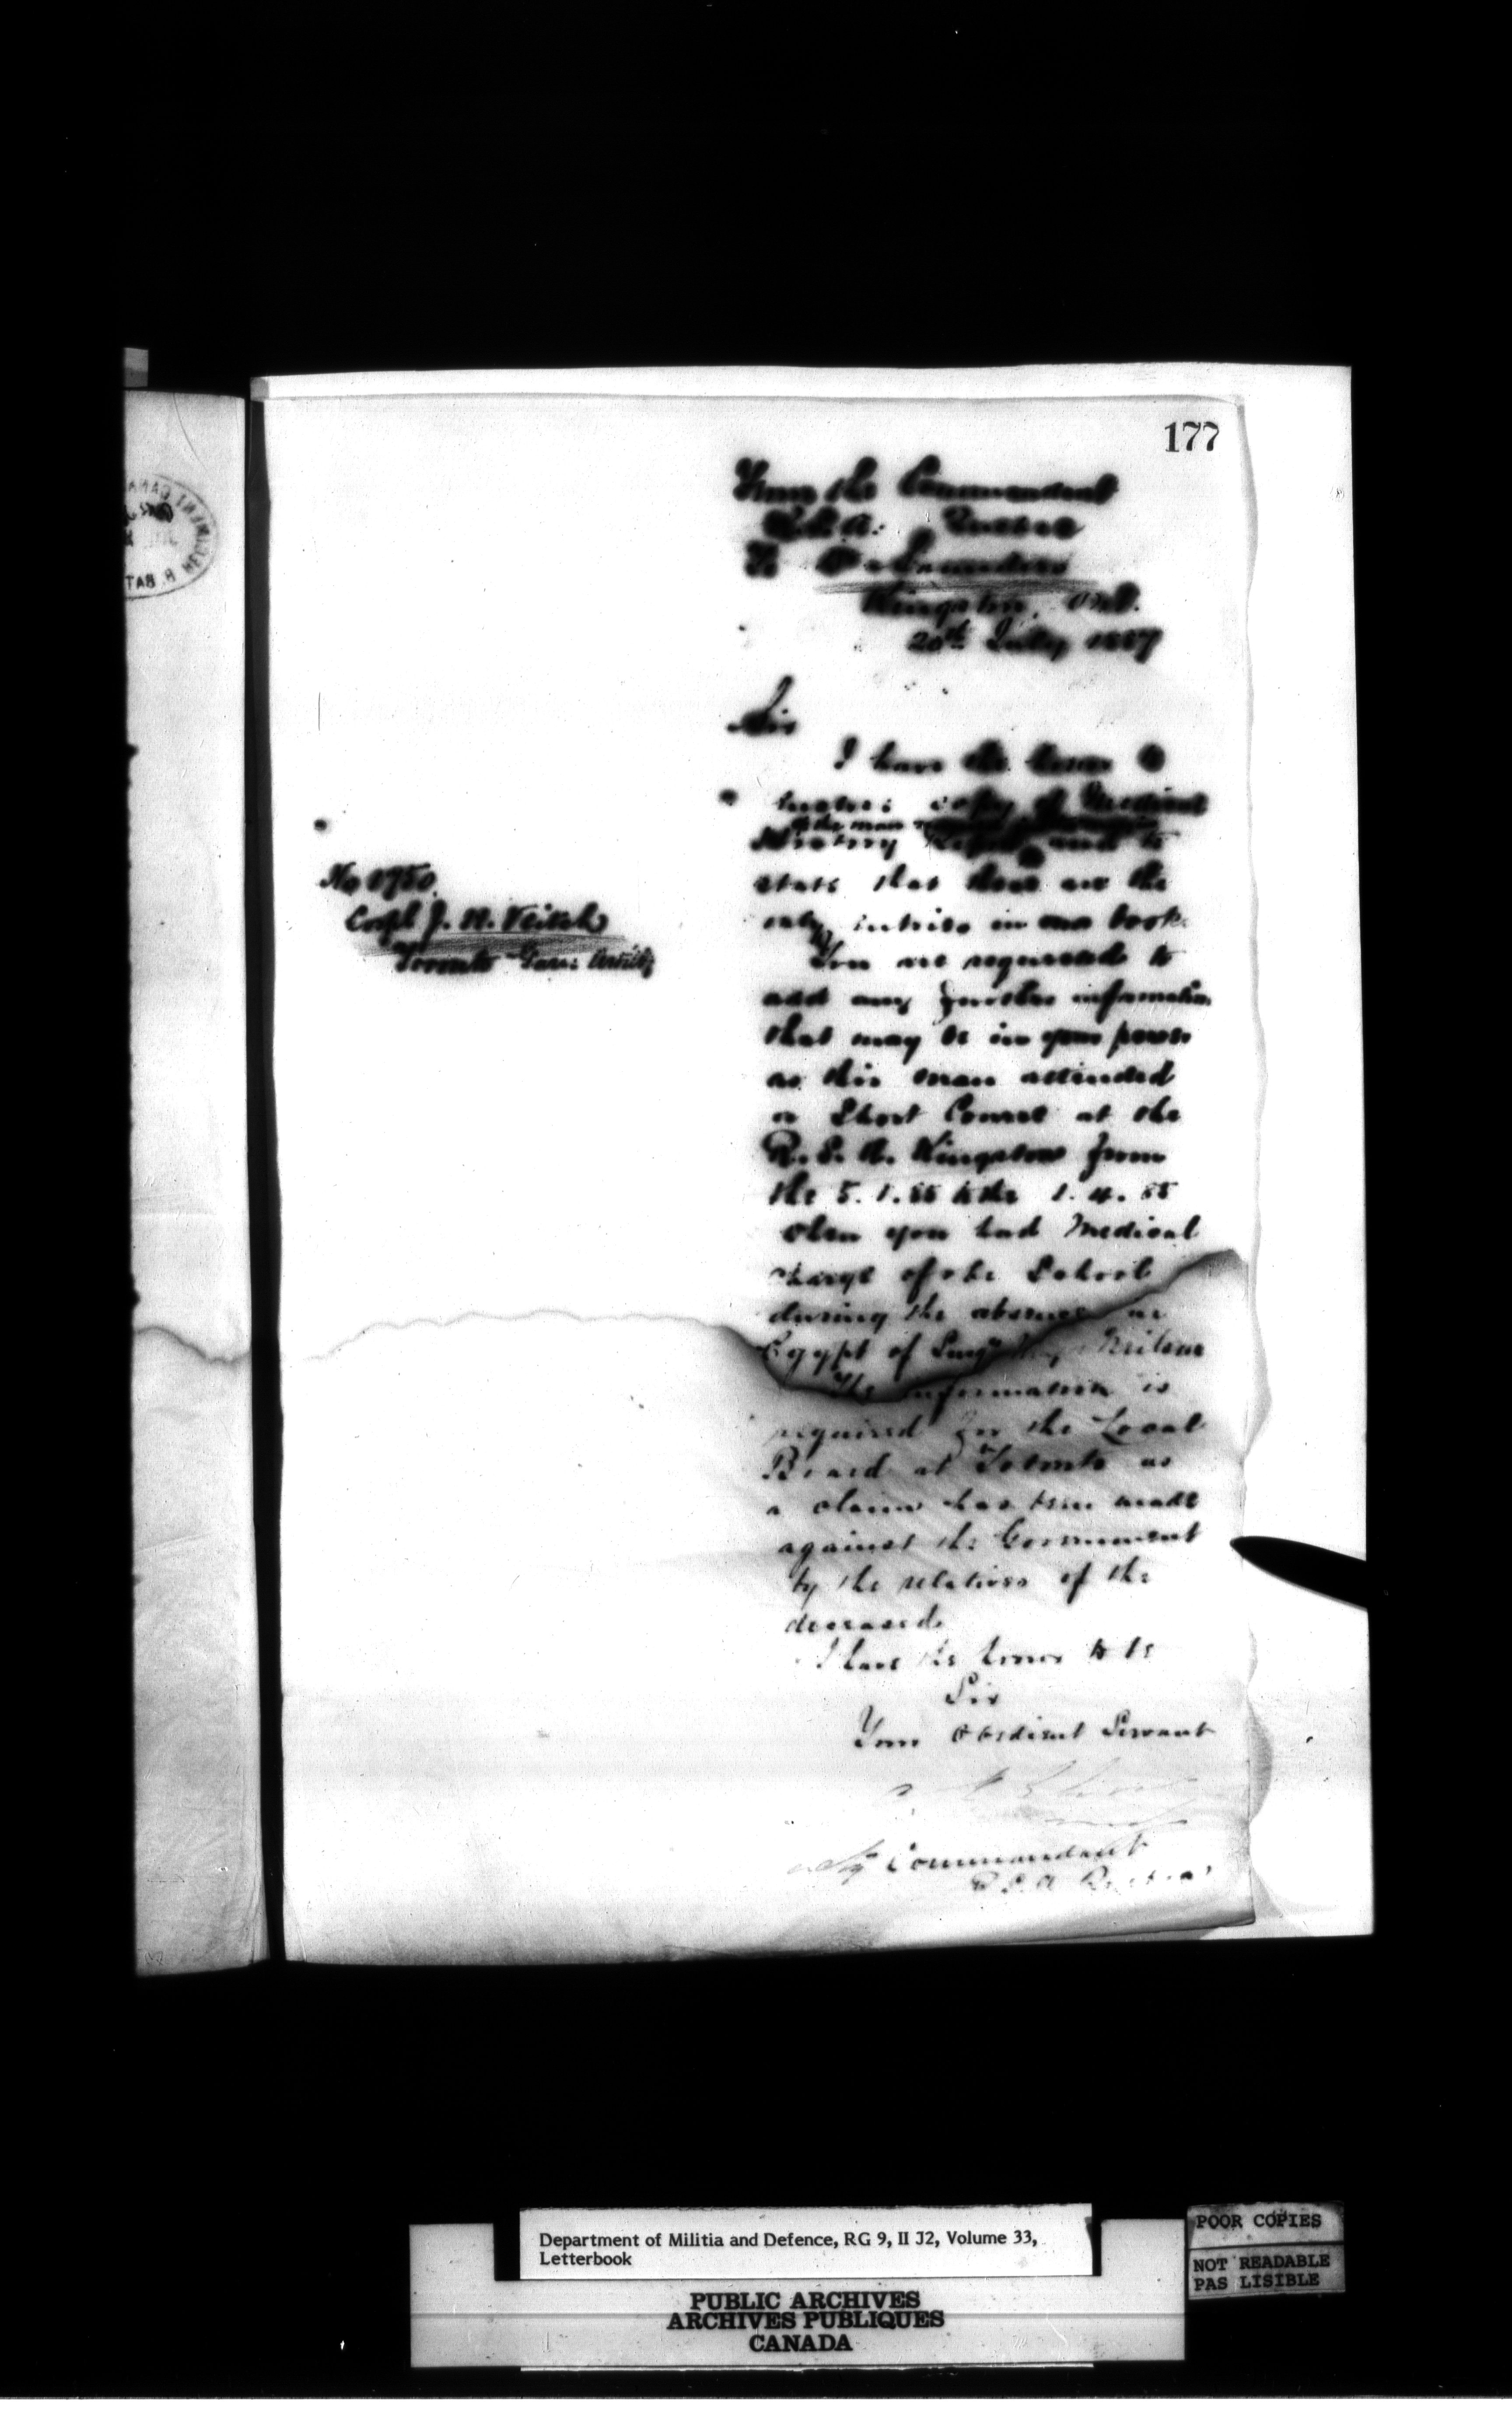 177
From the Commandant
R.S.A. Quebec
To Dr Saunders
Kingston, Ont.
20th July 1887
Sir
I have the honor to
copy of Medical
of the man
History and to
state that these are the
only entries in our book.
No 8750
Corpl J. N. Veitch
Toronto Garr: Artill'y
You are requested to
add any further information
that may be in your power
as this man attended
a Short Course at the
R.S.A. Kingston from
the 5.1.85 to the 1.4.85
when you had Medical
charge of the School
during the absence in
Egypt of Surgn Neilson
The information is
required for the Local
Board at Toronto as
a claim has been made
against the Government
by the relatives of the
deceased.
I have the honor to be
Sir
Your Obedient Servant
Commandant
R.S.A. Quebec
Department of Militia and Defence, RG 9, II J2, Volume 33,
Letterbook
PUBLIC ARCHIVES
ARCHIVES PUBLIQUES
CANADA
POOR COPIES
NOT READABLE
PAS LISIBLE